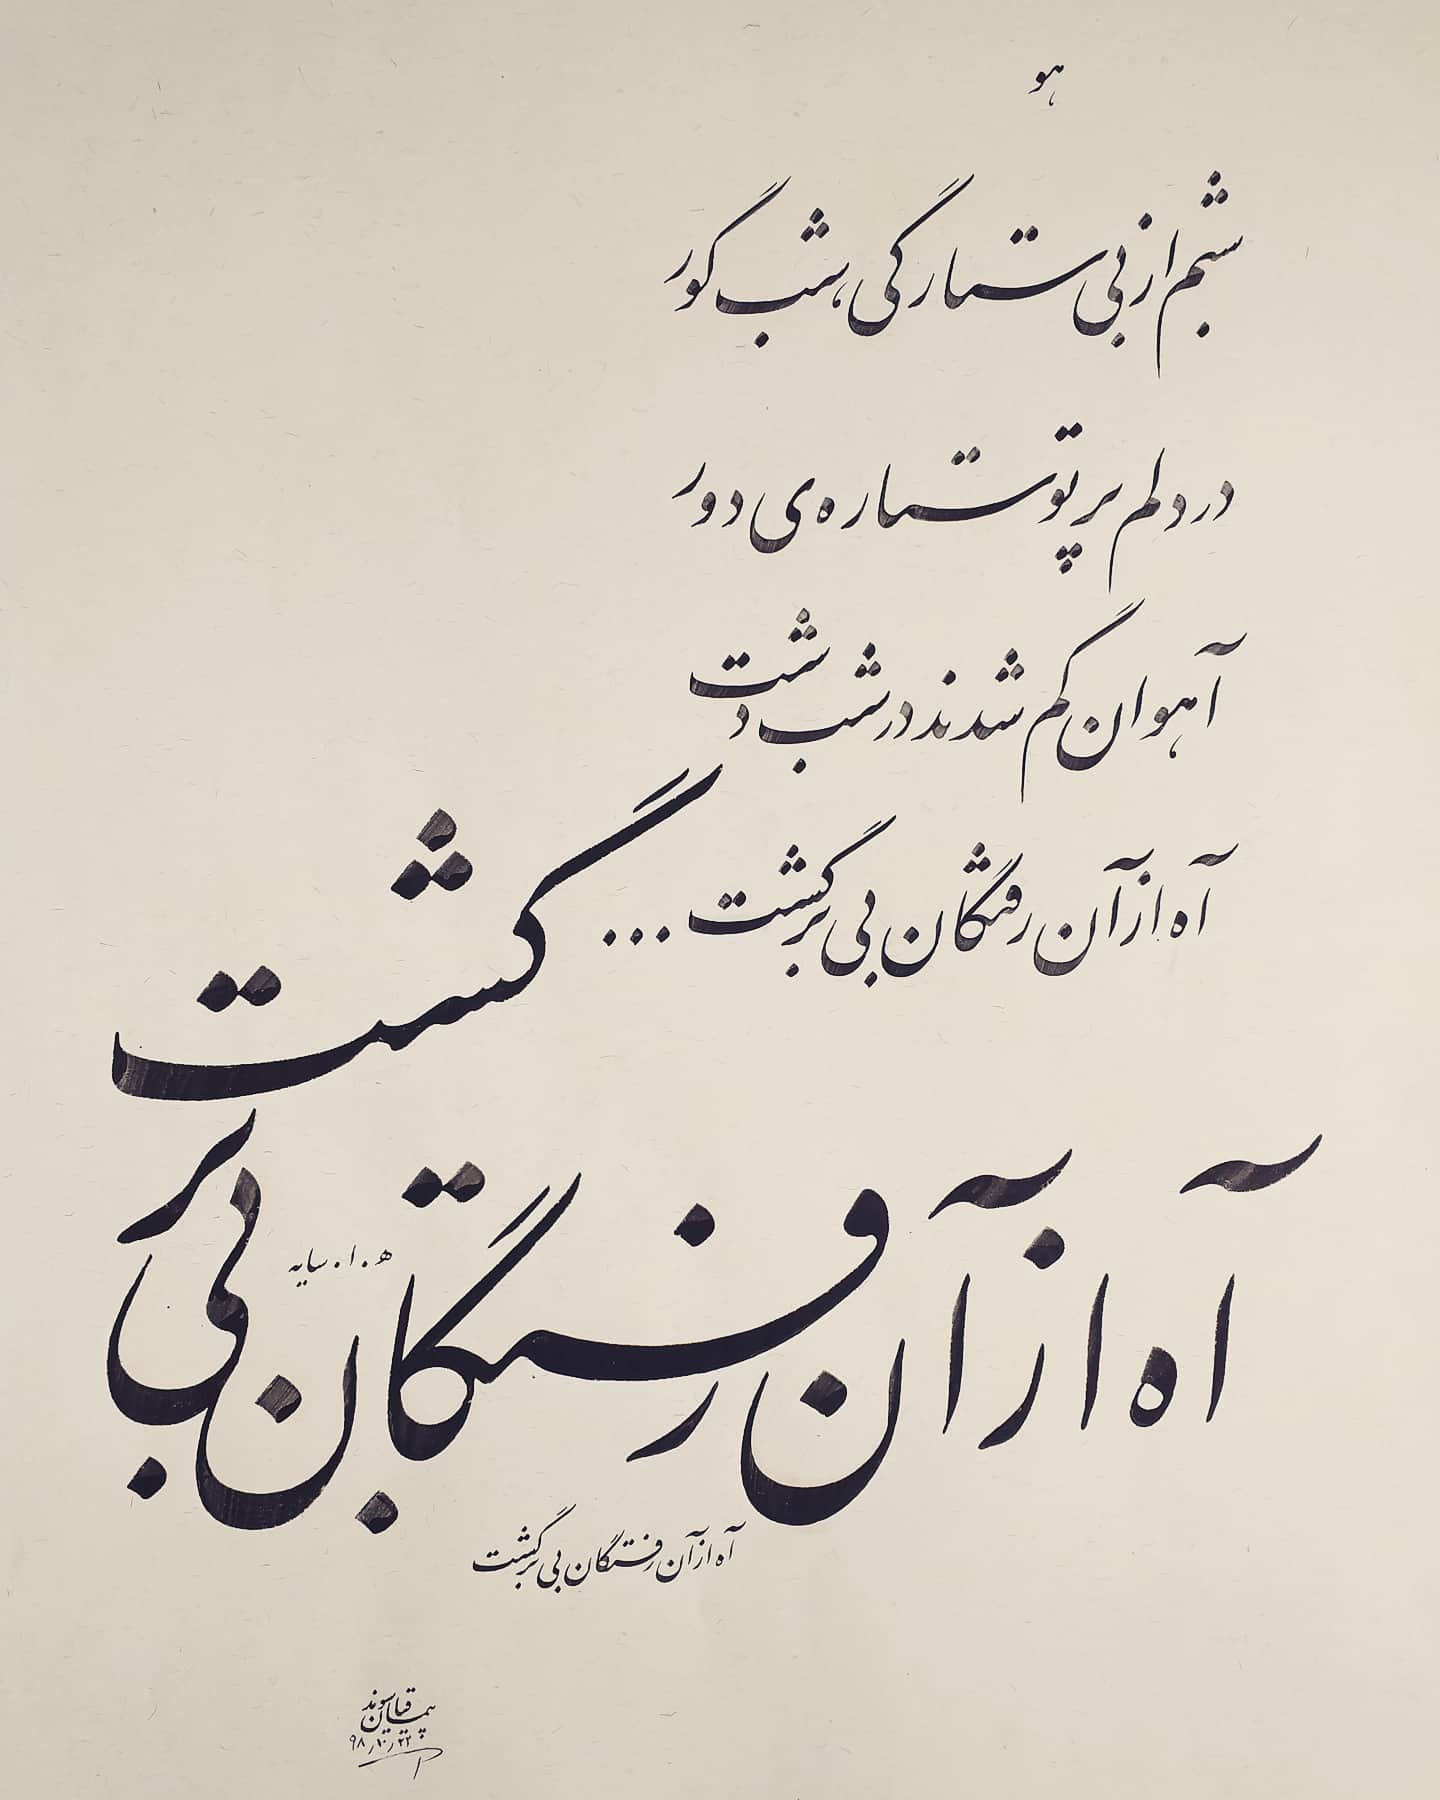 هو
شبم از بی ستارگی، شب گور
در دلم پرتو ستاره ی دور
آهوان گم شدند در شب دشت
آه از آن رفتگان بی برگشت...
آه از آن رفتگان بی برگشت
ه.ا.سایه
آه از آن رفتگان بی برگشت
۹۸٫۱۰٫۲۲